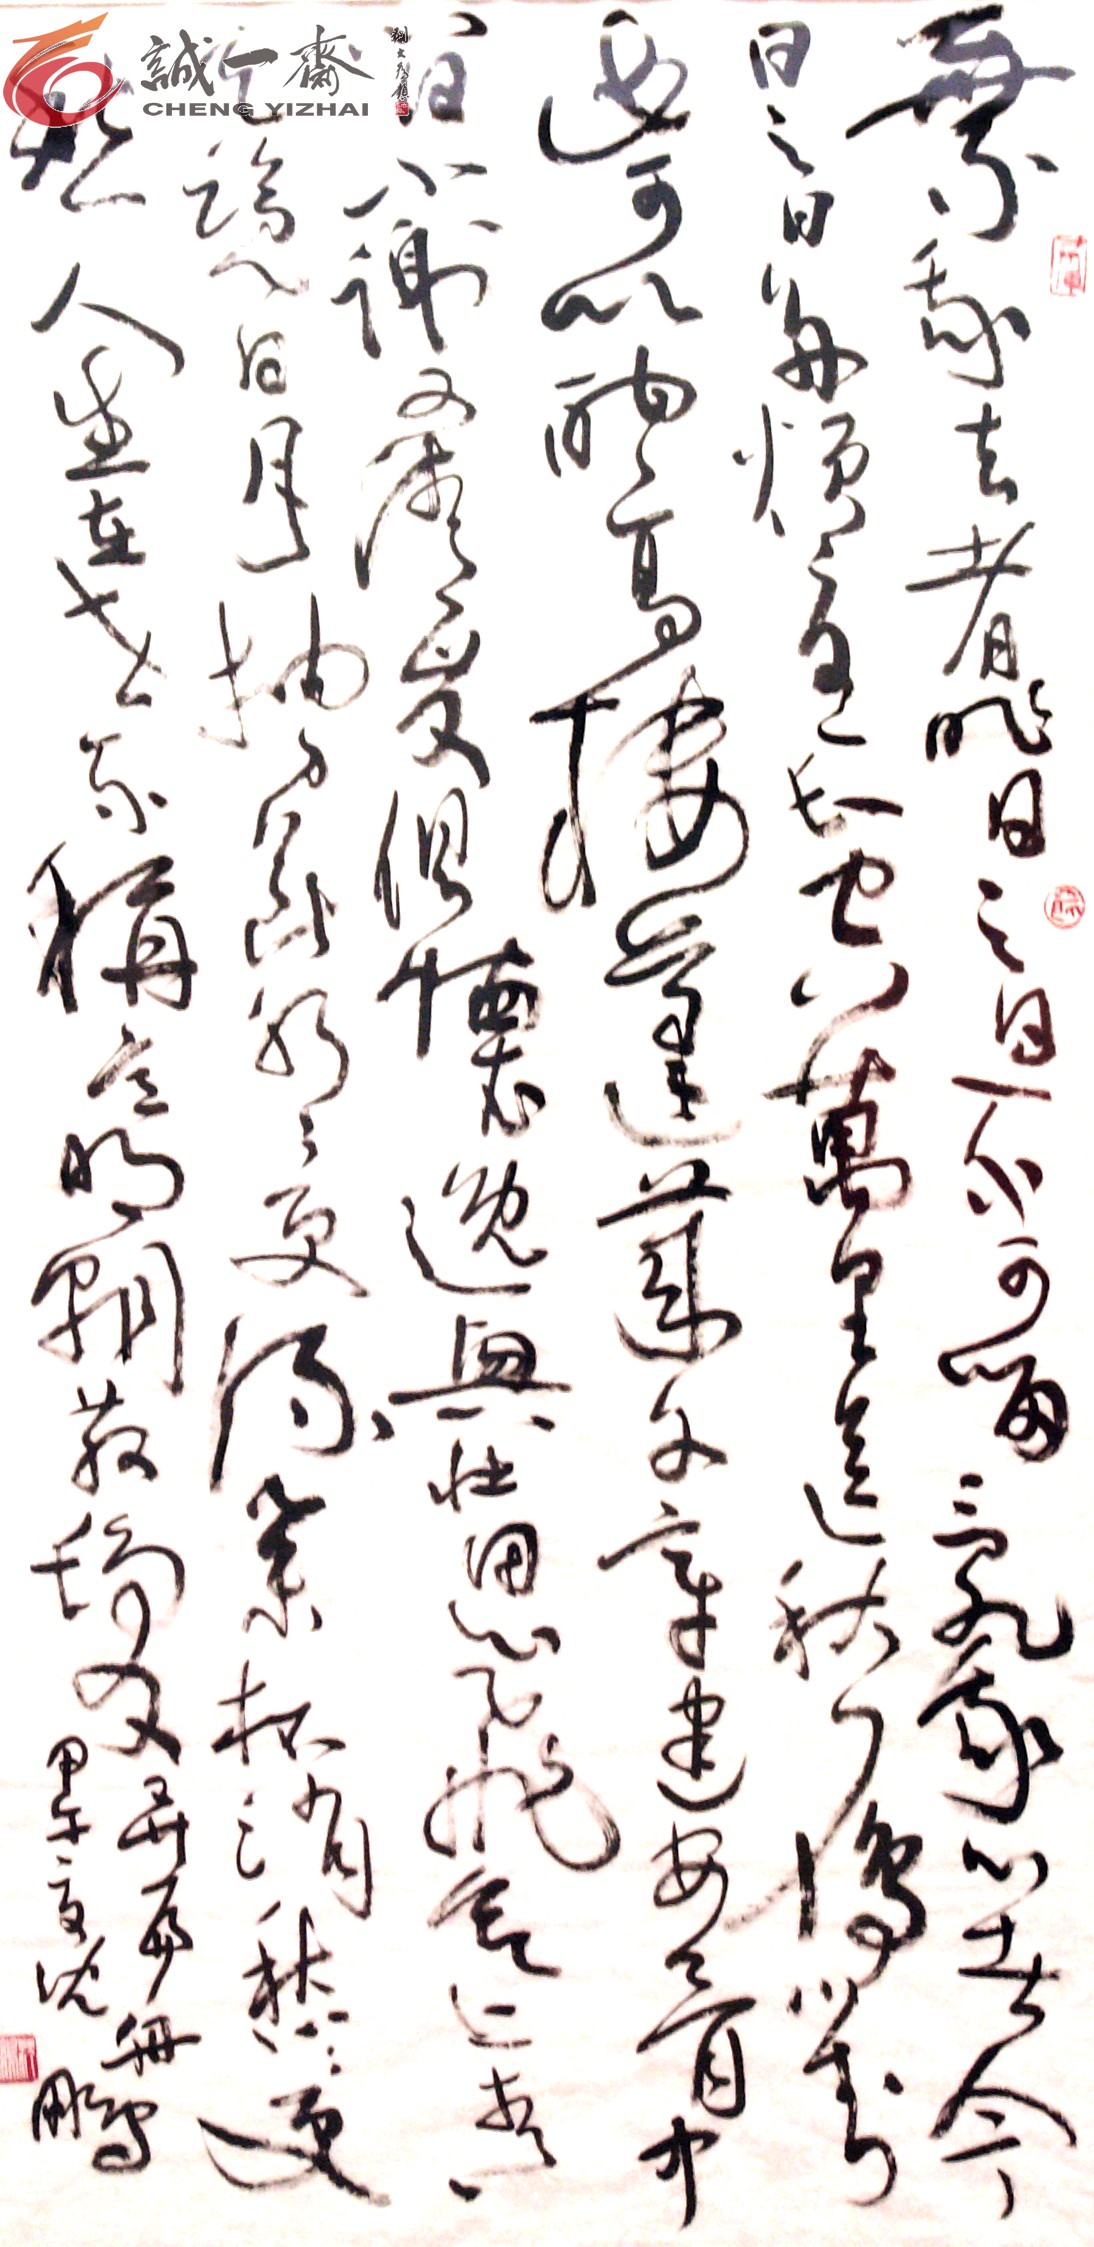 誠一齋
CHENG YIZHAI
棄我去者昨日之日不可留亂我心者今
日之日多煩憂長空萬里送秋鴈對
此可以酣高樓蓬萊文章建安骨中
間小謝又清發俱懷逸興壯思飛欲上青
天攬日月抽刀斷水水更流舉杯消愁愁更
愁人生在世不稱意明朝散髮弄扁舟
甲午夏沈鵬